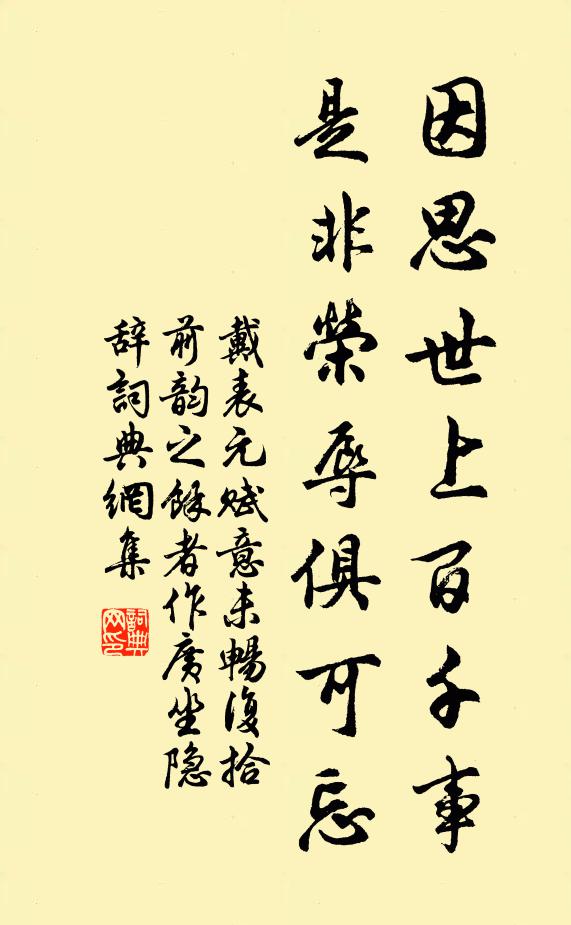 因思世上百千事
是非榮辱俱可忘
戴表元賦意未暢復拾
前韵之餘者作廣坐隐
辞詞典網集
詞典網印